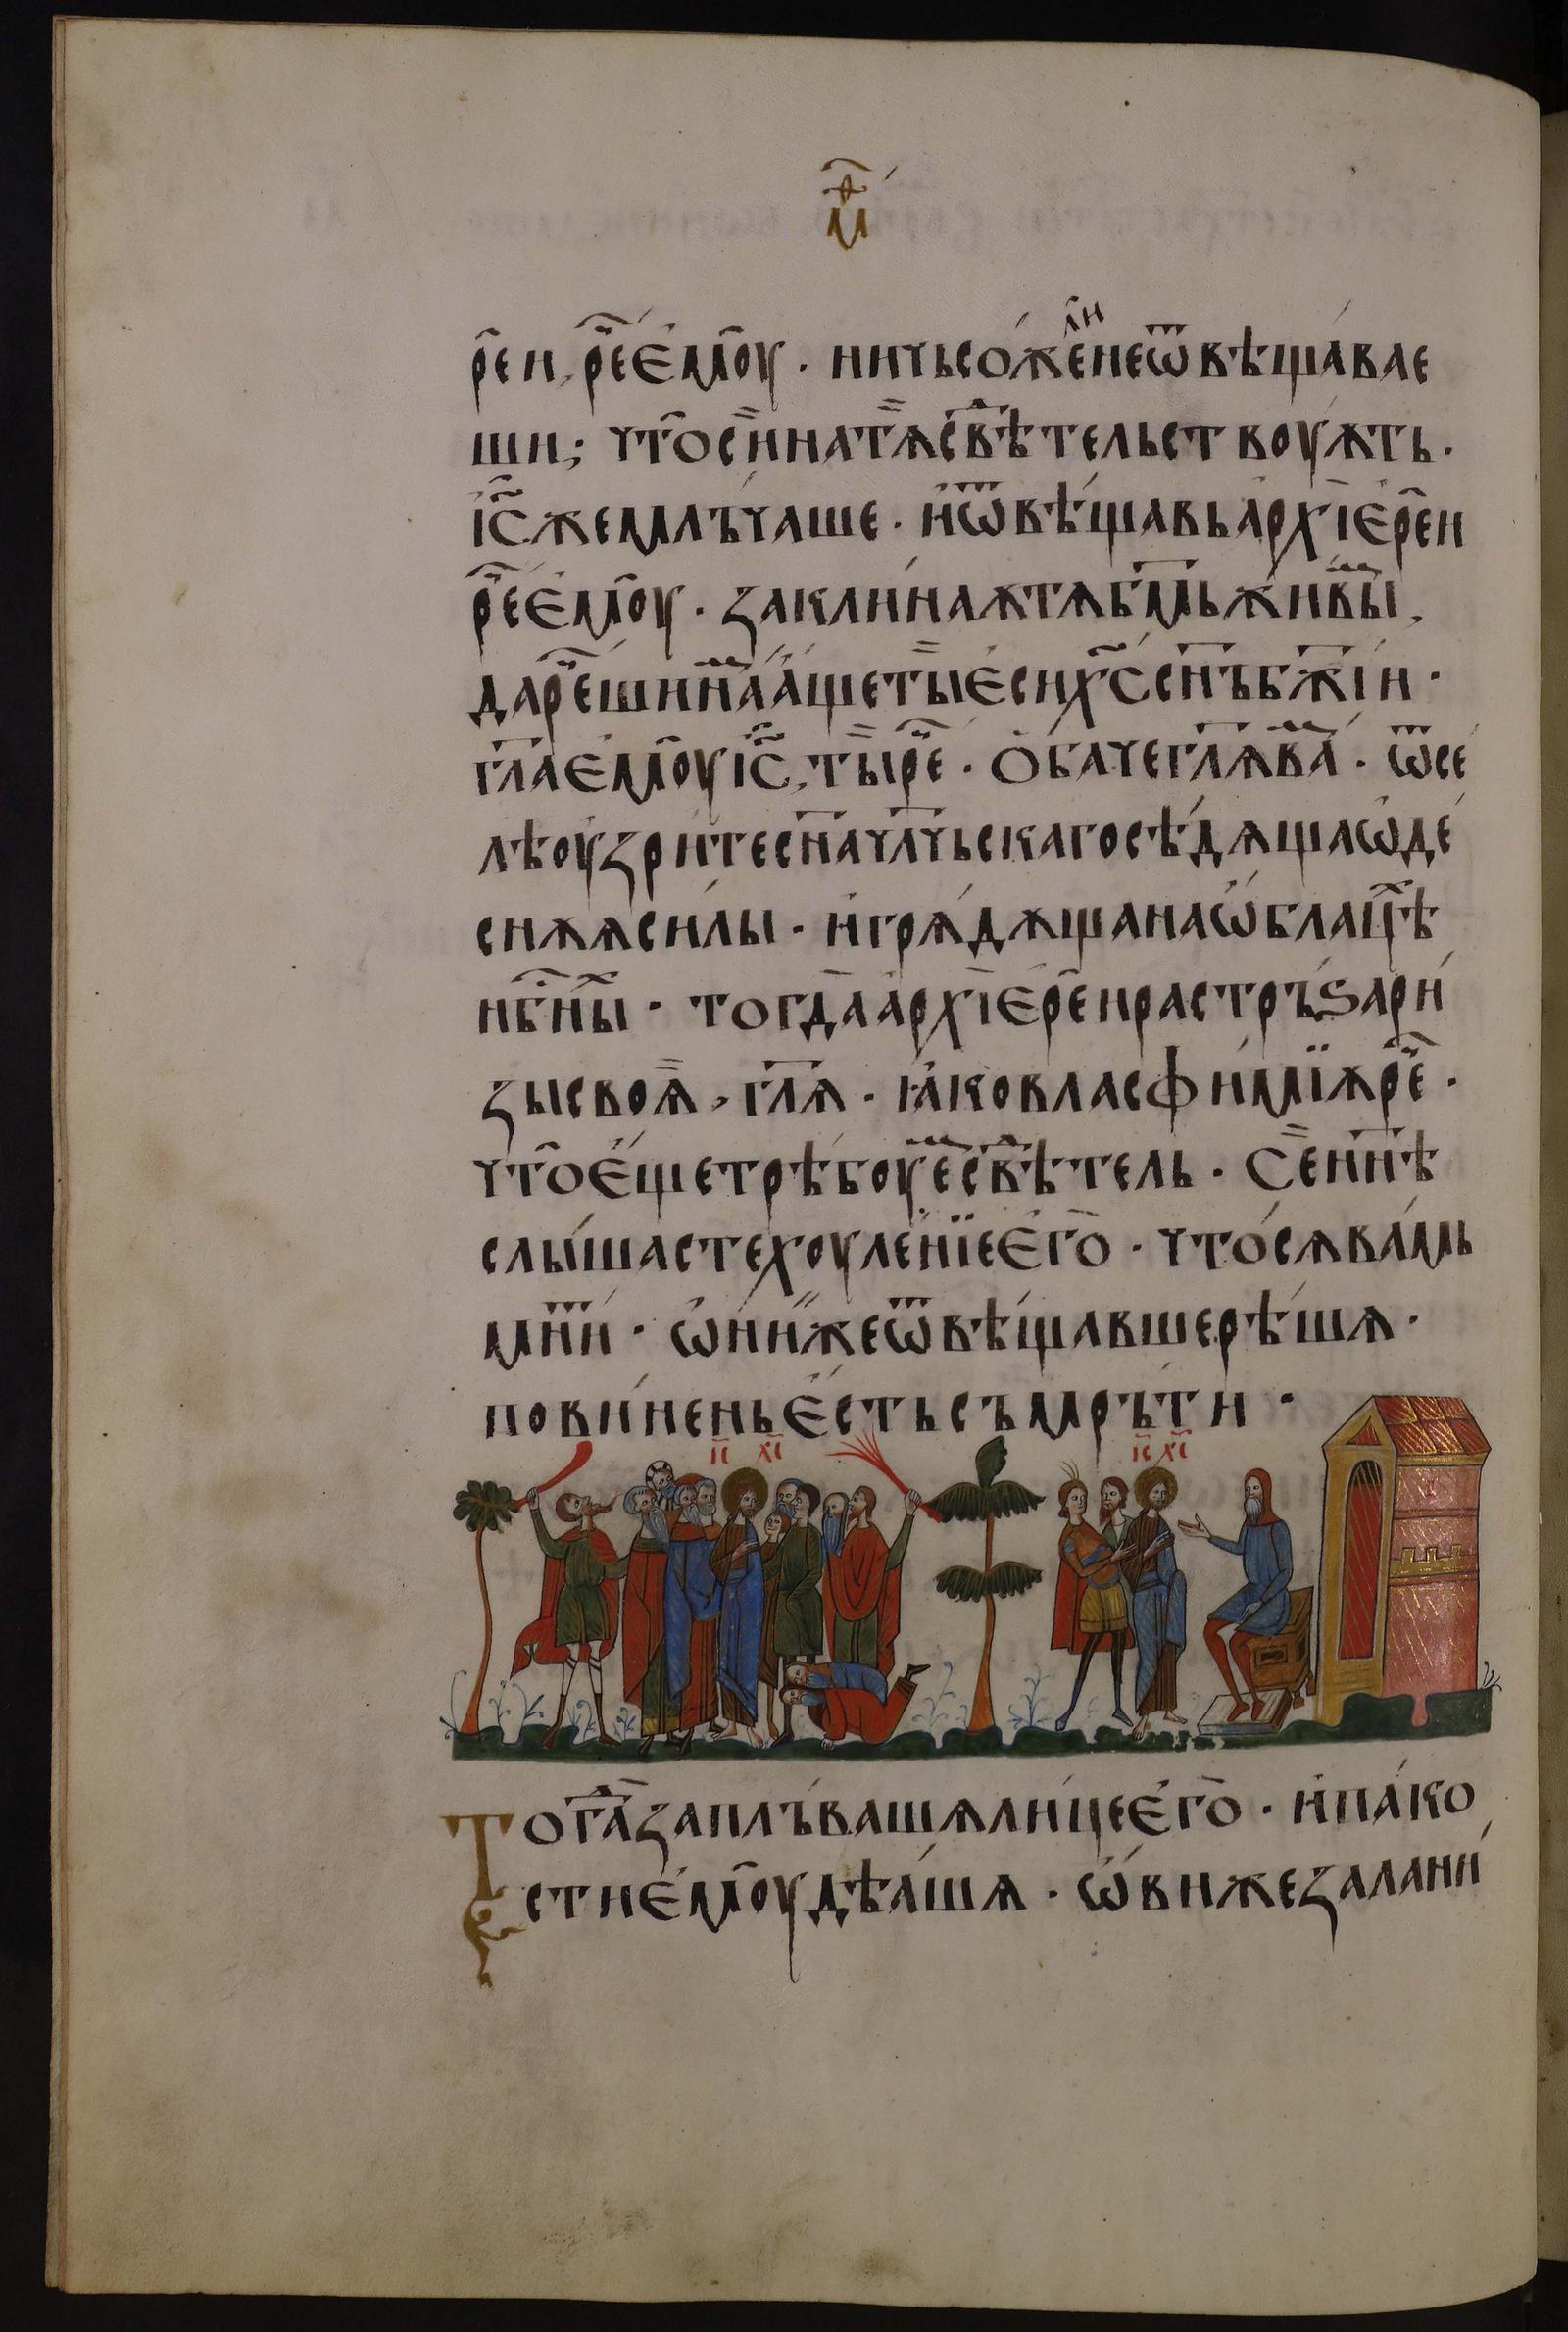 м҃а
ре́и, ре҃ е҆моу · ничьсо́же ли не ѿвѣща́вае
ши; что̑ сїи на тѧ свѣ̑тельствоуѫть ·
і҆с҃ же млъ́чаше · и҆ ѿвѣ́щавь а҆рхїе҆ре́и
ре҃ е҆моу · заклина́ѫ тѧ б҃мь живы́,
да ре҃ши на́ а҆́ще ты̀ е҆си х҃с с҃нъ б҃жїи ·
гл҃а е҆моу і҆с҃, ты̀ ре҃ · ѻ҆ба́че гл҃ѧ ва́ · ѿсе́
лѣ оу҆́зрите с҃на чл҃чьскаго сѣ́дѧща ѡ҆ де
снѫѧ си́лы · и҆ грѧ́дѫща на ѡ҆́блацѣ
нб҃ны · тогда̀ а҆рхїе҆ре́и растръ́ѕа ри́
зы своѧ̀, гл҃ѧ · ꙗ҆́ко власфи́мїѫ ре҃ ·
что̑ е҆́ще трѣ́боуе свѣ̑тель · Се н҃нѣ
слы́шасте хоуле́нїе е҆го̀ · что́ сѧ ва́мь
мни́ · ѡ҆ни́ же ѿвѣ́щавше рѣ́шѧ ·
пови́нень е҆́сть съмръ́ти ·
і҃с х҃с і҃с х҃с
Тогда̀ заплъ́вашѧ лице́ е҆го̀ · и҆ па́ко
сти е҆моу дѣа́шѧ · ѡ҆́ви же за лани́